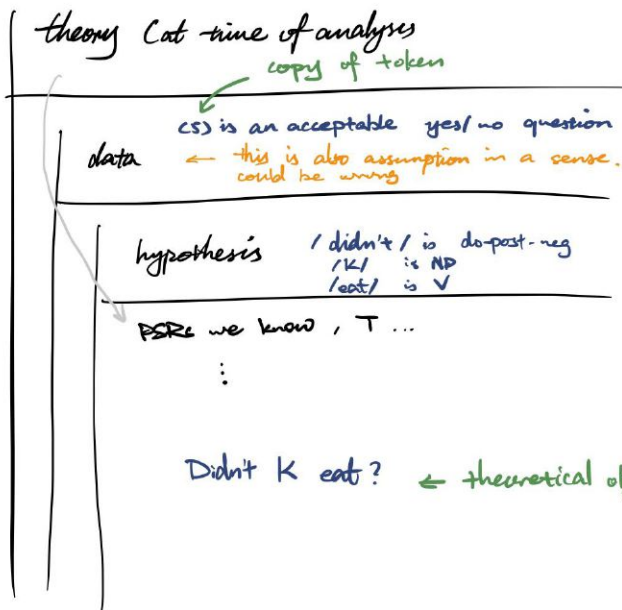 theory (at time of analysis
copy of token
(5) is an acceptable yes/no question
data ← this is also assumption in a sense.
could be wrong
hypothesis /didn't/ is do-past-neg
/K/ is NP
/eat/ is V
PSRs we know, T ...
⋮
Didn't K eat? ← theoretical